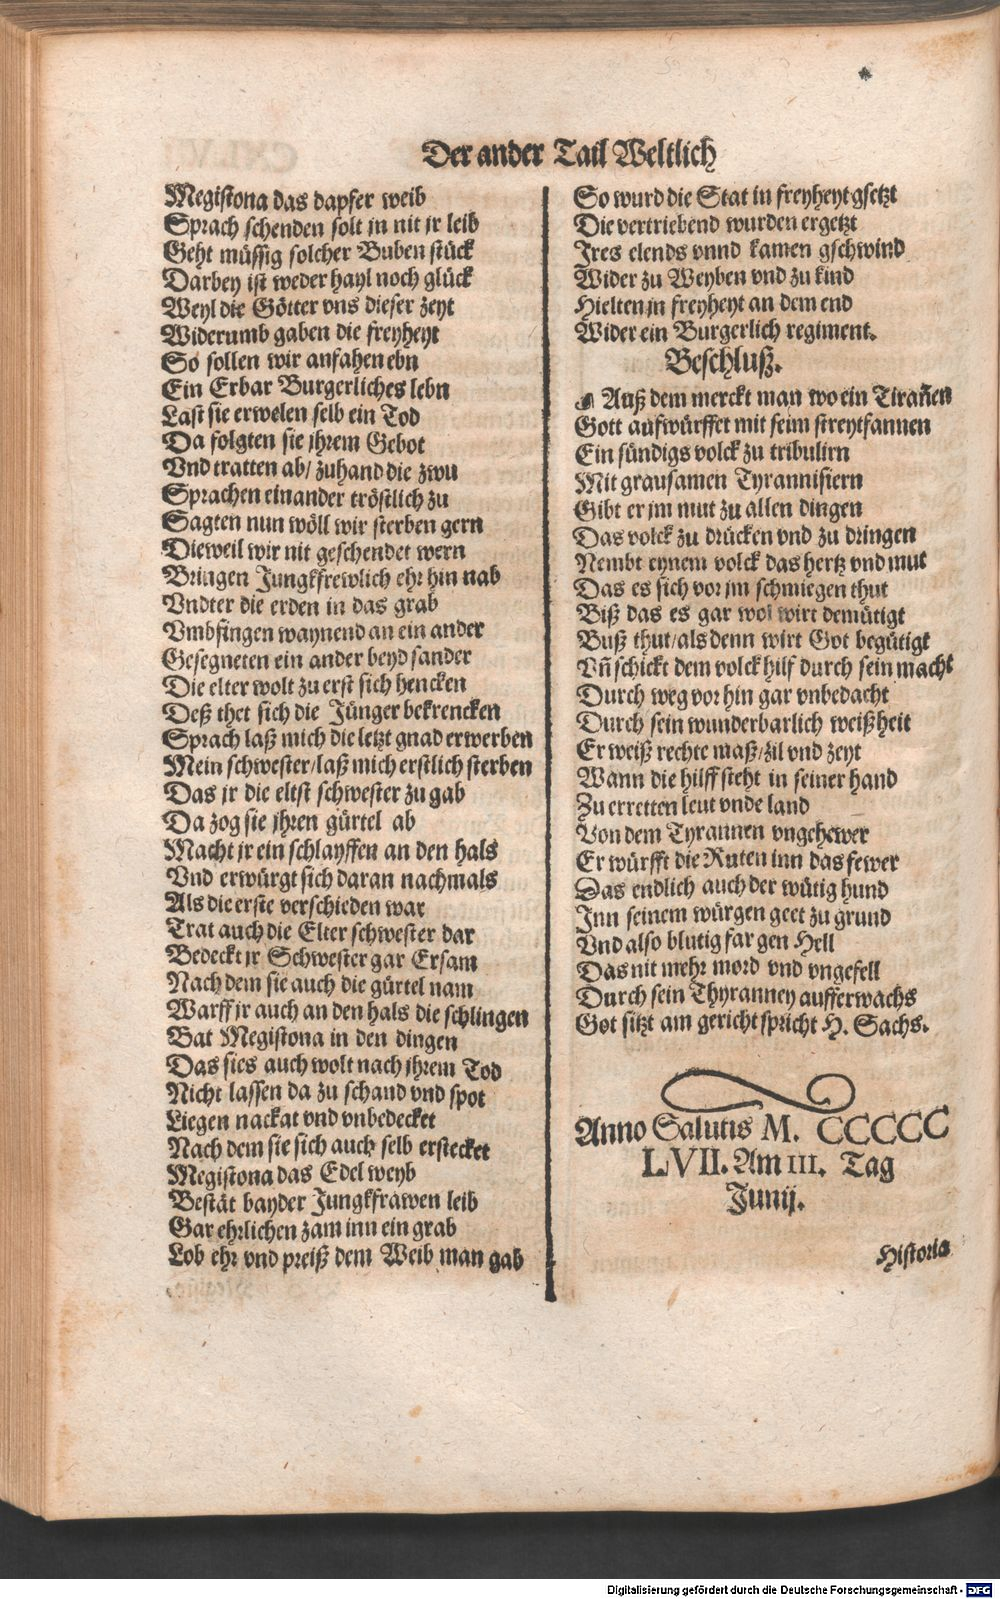 Der ander Tail Weltlich
Megistona das dapfer weib
Sprach schenden solt jn nit jr leib
Geht müssig solcher Buben stück
Darbey ist weder hayl noch glück
Weyl die Götter vns dieser zeyt
Widerumb gaben die freyheyt
So sollen wir anfahen ebn
Ein Erbar Burgerliches lebn
Last sie erwelen selb ein Tod
Da folgten sie jhrem Gebot
Vnd tratten ab/ zuhand die zwu
Sprachen einander tröstlich zu
Sagten nun wöll wir sterben gern
Dieweil wir nit geschendet wern
Bringen Jungkfrewlich ehr hin nab
Vndter die erden in das grab
Vmbfingen waynend an ein ander
Gesegneten ein ander beyd sander
Die elter wolt zu erst sich hencken
Deß thet sich die Jünger bekrencken
Sprach laß mich die letzt gnad erwerben
Mein schwester/ laß mich erstlich sterben
Das jr die eltst schwester zu gab
Da zog sie jhren gürtel ab
Macht jr ein schlayffen an den hals
Vnd erwürgt sich daran nachmals
Als die erste verschieden war
Trat auch die Elter schwester dar
Bedeckt jr Schwester gar Ersam
Nach dem sie auch die gürtel nam
Warff jr auch an den hals die schlingen
Bat Megistona in den dingen
Das sies auch wolt nach jhrem Tod
Nicht lassen da zu schand vnd spot
Liegen nackat vnd vnbedecket
Nach dem sie sich auch selb erstecket
Megistona das Edel weyb
Bestät bayder Jungkfrawen leib
Gar ehrlichen zam inn ein grab
Lob ehr vnd preiß dem Weib man gab
So wurd die Stat in freyheyt gsetzt
Die vertriebend wurden ergetzt
Jres elends vnnd kamen gschwind
Wider zu Weyben vnd zu kind
Hielten jn freyheyt an dem end
Wider ein Burgerlich regiment.
Beschluß.
Auß dem merckt man wo ein Tirañen
Gott aufwürffet mit seim streytfannen
Ein sündigs volck zu tribulirn
Mit grausamen Tyrannisiern
Gibt er jm mut zu allen dingen
Das volck zu drücken vnd zu dringen
Nembt eynem volck das hertz vnd mut
Das es sich vor jm schmiegen thut
Biß das es gar wol wirt demütigt
Buß thut/ als denn wirt Got begütigt
Vñ schickt dem volck hilf durch sein macht
Durch weg vorhin gar vnbedacht
Durch sein wunderbarlich weißheit
Er weiß rechte maß/ zil vnd zeyt
Wann die hilff steht in seiner hand
Zu erretten leut vnde land
Von dem Tyrannen vngehewer
Er würfft die Ruten inn das fewer
Das endlich auch der wütig hund
Inn seinem würgen geet zu grund
Vnd also blutig far gen Hell
Das nit mehr mord vnd vngefell
Durch sein Thyranney aufferwachs
Got sitzt am gericht spricht H. Sachs.
Anno Salutis M. CCCCC
LVII. Am III. Tag
Junij.
Historia
Digitalisierung gefördert durch die Deutsche Forschungsgemeinschaft - DFG